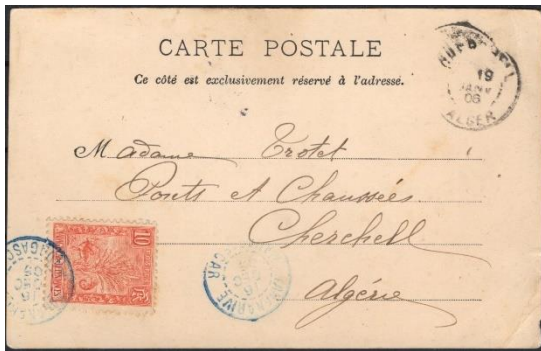 CARTE POSTALE
Ce côté est exclusivement réservé à l'adresse.
19
JANV
06
ALGER
Madame Trotet
Ponts et Chaussées
Cherchell
Algérie
10